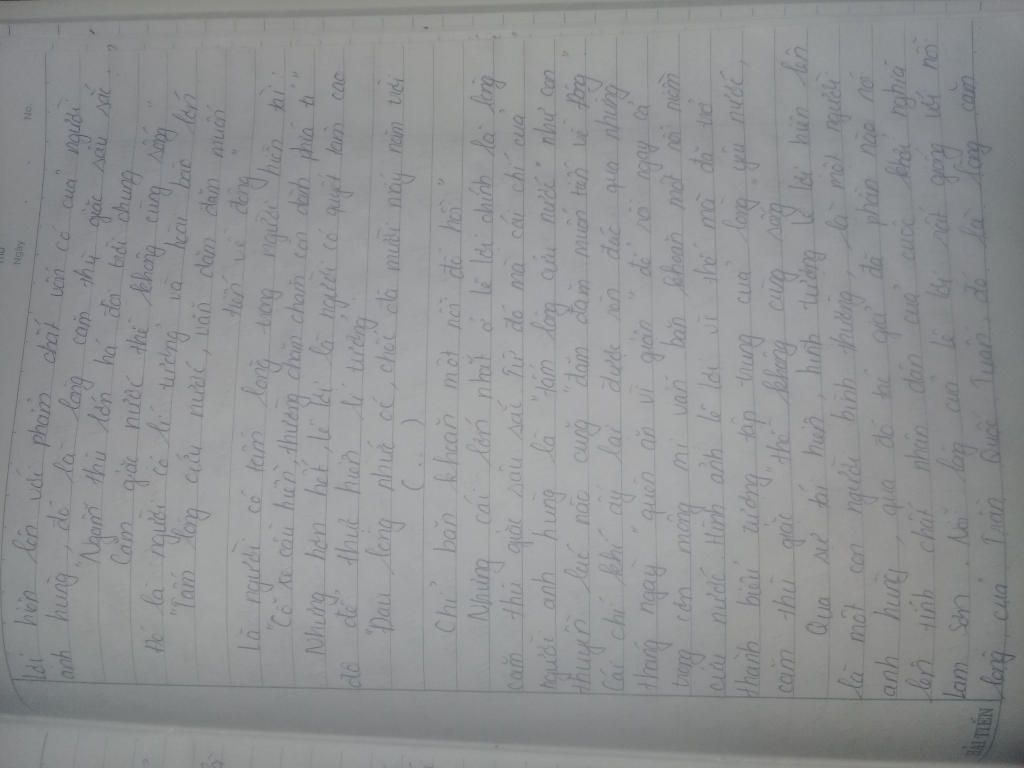 Thứ
Ngày
No.
Lợi hiện lên với phẩm chất vốn có của người
anh hùng, đó là lòng căm thù giặc sâu sắc,
"Ngẫm thù lớn há đội trời chung
Căm giặc nước thề không cùng sống"
Đó là người có lí tưởng và hoài bão lớn
"Tấm lòng cứu nước, vẫn đăm đăm muốn
tiến về đông"
Là người có tấm lòng trọng người hiền tài
"Cỗ xe cầu hiền thường chăm chăm còn dành phía tả"
Những hơn hết, Lê Lợi là người có quyết tâm cao
độ để thực hiện lí tưởng
"Đau lòng nhức óc, chốc đà mười mấy năm trời
(...)
Chỉ băn khoăn một nỗi đồ hồi"
Nhưng cái lớn nhất ở Lê Lợi chính là lòng
căm thù giặc sâu sắc. Từ đó mà cái chí của
người anh hùng là "tấm lòng cứu nước" như con
thuyền lúc nào cũng "đăm đăm muốn tiến về đông"
Cái chí khí ấy lại được rèn đúc qua những
tháng ngày "quên ăn vì giận" để rồi ngay cả
trong cơn mộng mị vẫn băn khoăn một nỗi niềm
cứu nước. Hình ảnh Lê Lợi vì thế mà đã trở
thành biểu tượng tập trung của lòng yêu nước,
căm thù giặc "thề không cùng sống"
Qua sự tái hiện, hình tượng Lê Lợi hiện lên
là một con người bình thường, là một người
anh hùng, qua đó tác giả đã phần nào nói
lên tính chất nhân dân của cuộc khởi nghĩa
Lam Sơn. Nỗi lòng của Lê Lợi rất giống với nỗi
lòng của Trần Quốc Tuấn đó là lòng căm
HẢI TIẾN